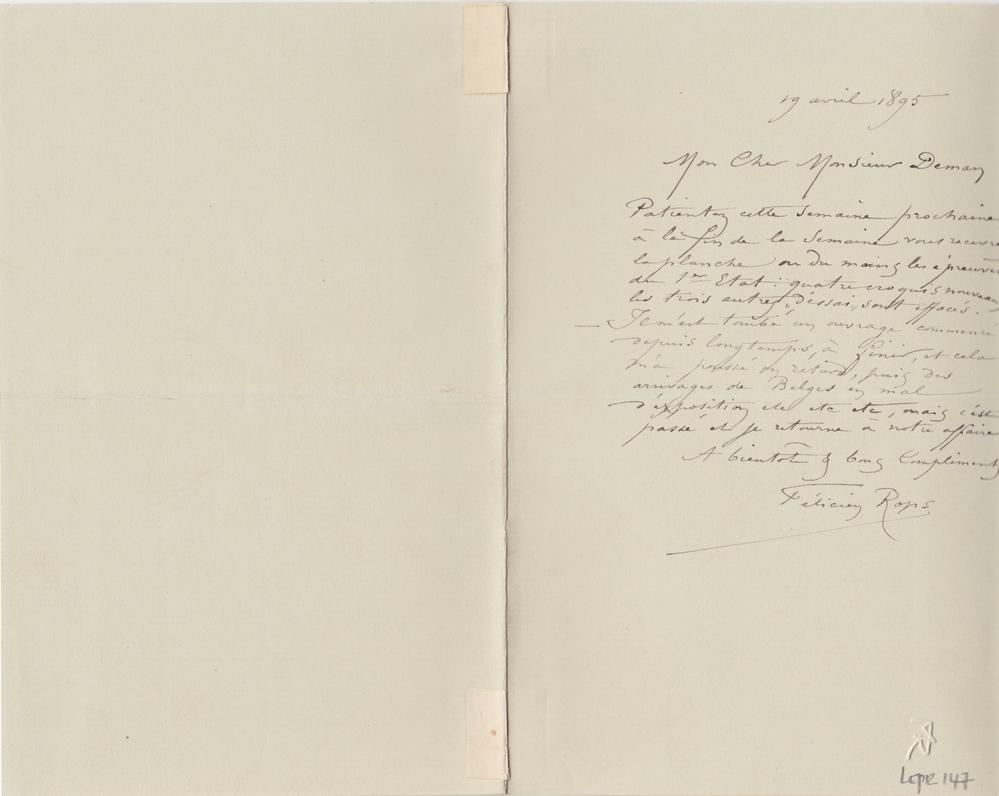 19 avril 1895
Mon Cher Monsieur Deman
Patientez cette semaine prochaine
à la fin de la semaine vous recevre
la planche ou du moins les épreuves
du 1er Etat : quatre croquis nouveaux
les trois autres, "d'éssai", sont effacés.
— Il m'est tombé un ouvrage commencé
depuis longtemps, à finir, et cela
m'a poussé en retard, puis des
arrivages de Belges en mal
d'éxposition etc etc etc, mais c'est
passé et je retourne à notre affaire
A bientot & bons Compliments
Félicien Rops
LEpR 147